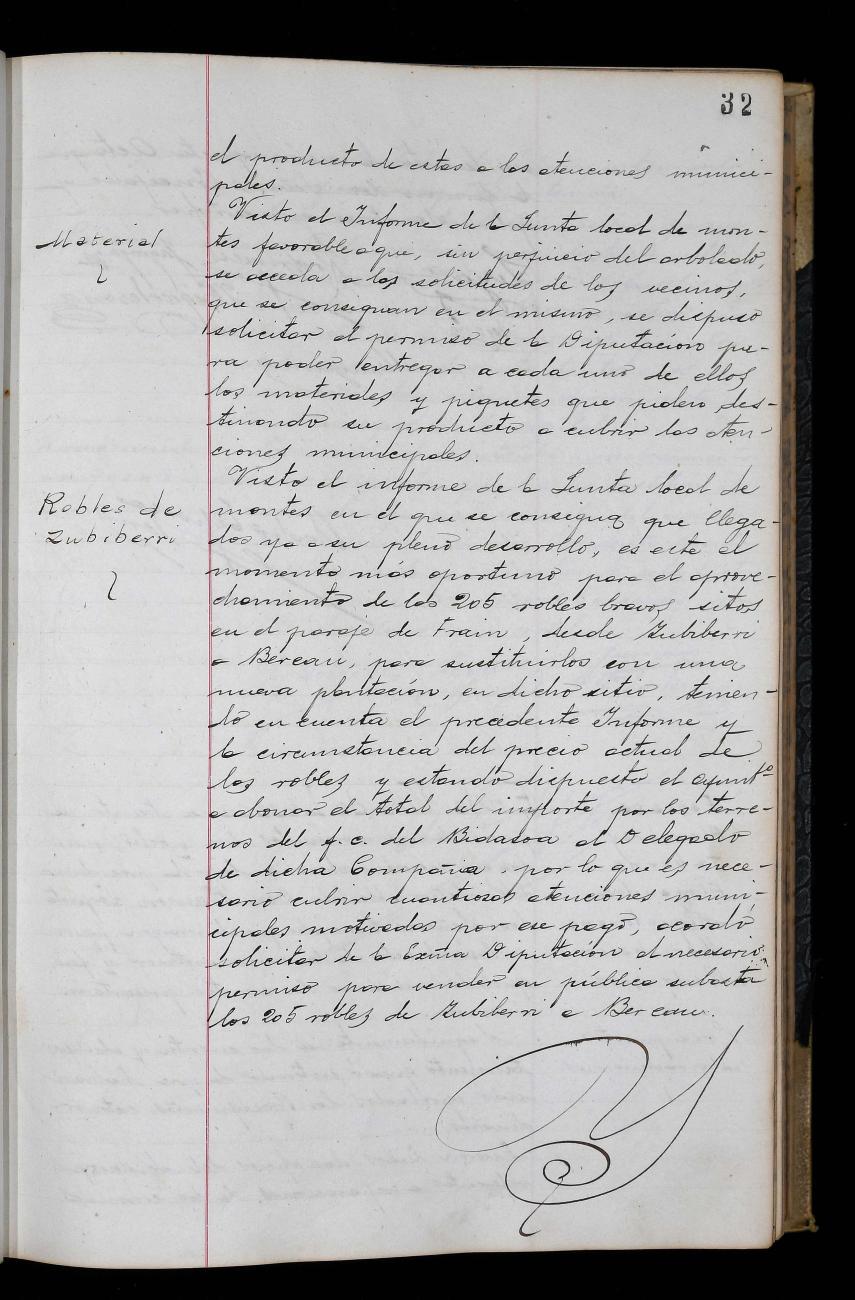 32
el producto de estas a las atenciones munici-
pales.
Material
Visto el Informe de la Junta local de mon-
tes favorable a que, sin perjuicio del arbolado,
se acceda a las solicitudes de los vecinos,
que se consignan en el mismo, se dispuso
solicitar el permiso de la Diputación pa-
ra poder entregar a cada uno de ellos
los materiales y piquetes que piden des-
tinando su producto a cubrir las aten-
ciones municipales.
Robles de
Zubiberri
Visto el informe de la Junta local de
montes en el que se consigna que llega-
dos ya a su pleno desarrollo, es este el
momento más oportuno para el aprove-
chamiento de los 205 robles bravos sitos
en el paraje de Frain, desde Zubiberri
a Bereau, para sustituirlos con una
nueva plantación, en dicho sitio, tenien-
do en cuenta el precedente Informe y
la circunstancia del precio actual de
los robles y estando dispuesto el Ayuntº
a abonar el total del importe por los terre-
nos del f.c. del Bidasoa al Delegado
de dicha Compañia, por lo que es nece-
sario cubrir cuantiosas atenciones muni-
cipales motivadas por ese pago, acordó
solicitar de la Exma Diputación el necesario
permiso para vender en pública subasta
los 205 robles de Zubiberri a Bereau.